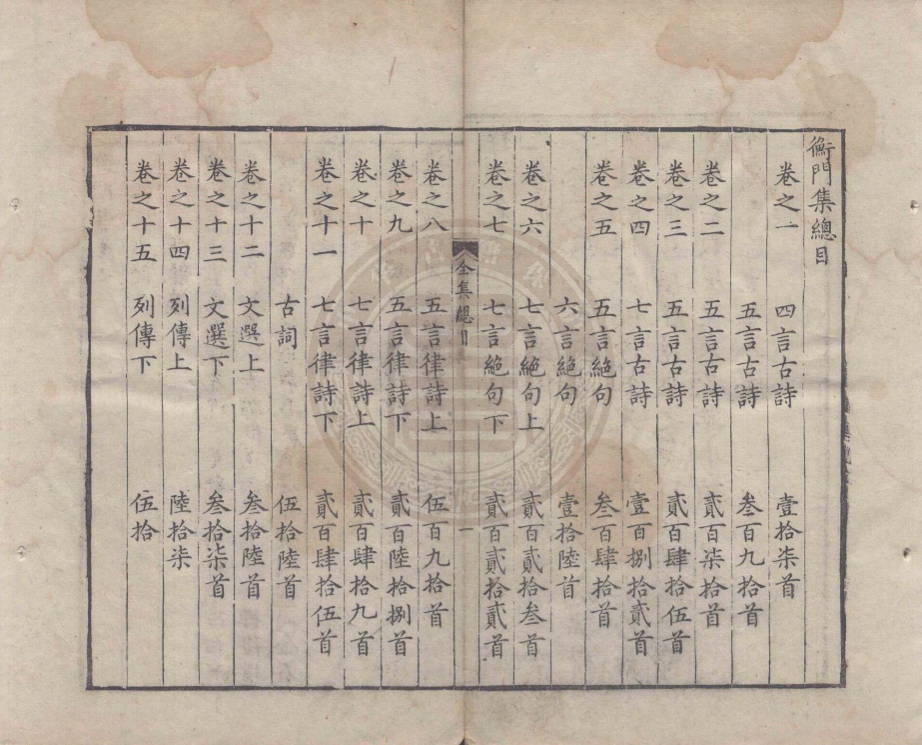 衡門集總目
卷之一 四言古詩 壹拾柒首
五言古詩 叁百九拾首
卷之二 五言古詩 貳百柒拾首
卷之三 五言古詩 貳百肆拾伍首
卷之四 七言古詩 壹百捌拾貳首
卷之五 五言絕句 叁百肆拾首
六言絕句 壹拾陸首
卷之六 七言絕句上 貳百貳拾叁首
卷之七 七言絕句下 貳百貳拾貳首
全集總目 一
卷之八 五言律詩上 伍百九拾首
卷之九 五言律詩下 貳百陸拾捌首
卷之十 七言律詩上 貳百肆拾九首
卷之十一 七言律詩下 貳百肆拾伍首
古詞 伍拾陸首
卷之十二 文選上 叁拾陸首
卷之十三 文選下 叁拾柒首
卷之十四 列傳上 陸拾柒
卷之十五 列傳下 伍拾